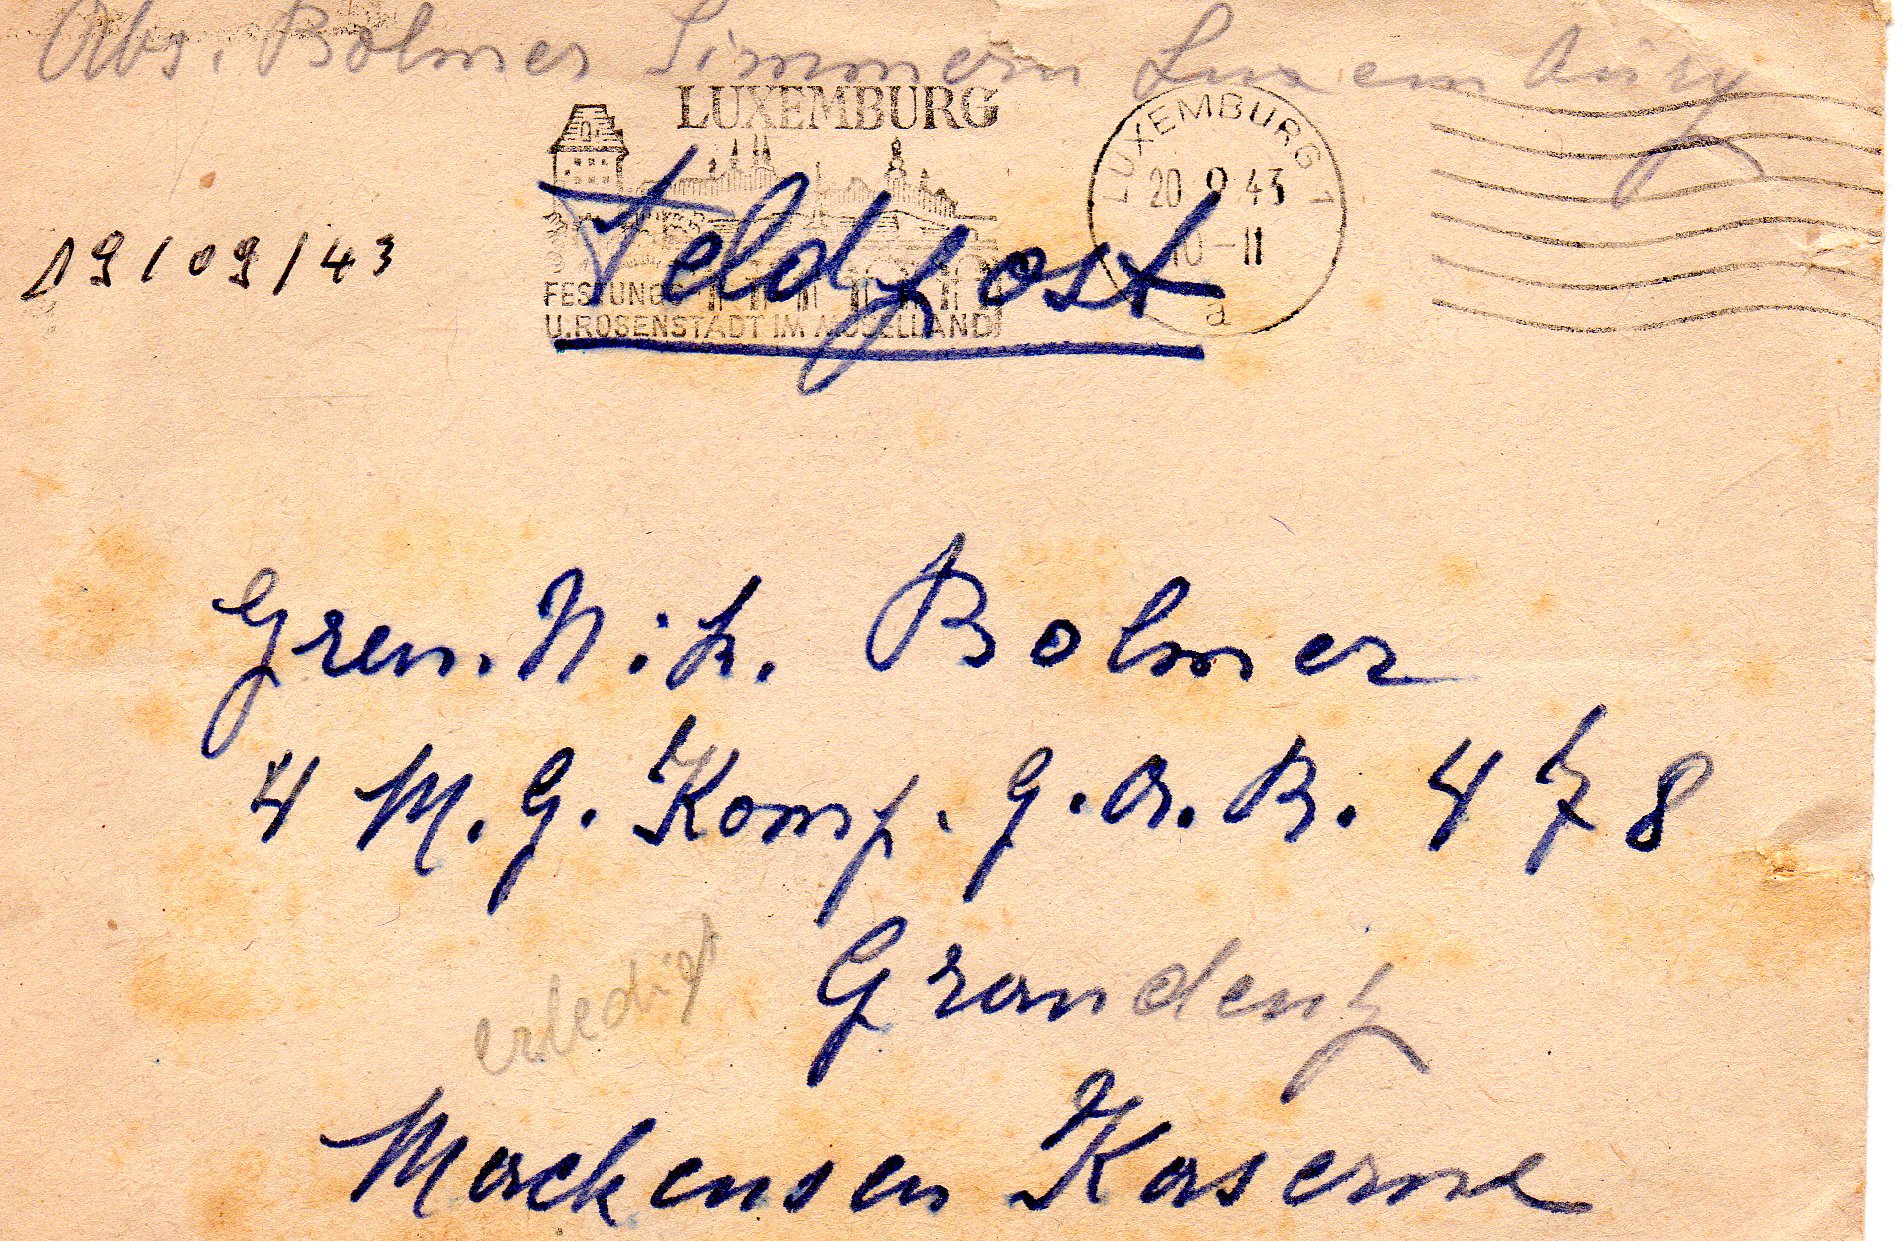 Abs. Bolmer Simmern Luxemburg
LUXEMBURG
FESTUNGS
U. ROSENSTADT IM MOSELLAND
LUXEMBURG 1
20 9 43
10-11
a
19/09/43
Feldpost
Gren. Nik. Bolmer
4 M. G. Komp. G. A. B. 478
Graudenz
erledigt
Mackensen Kaserne